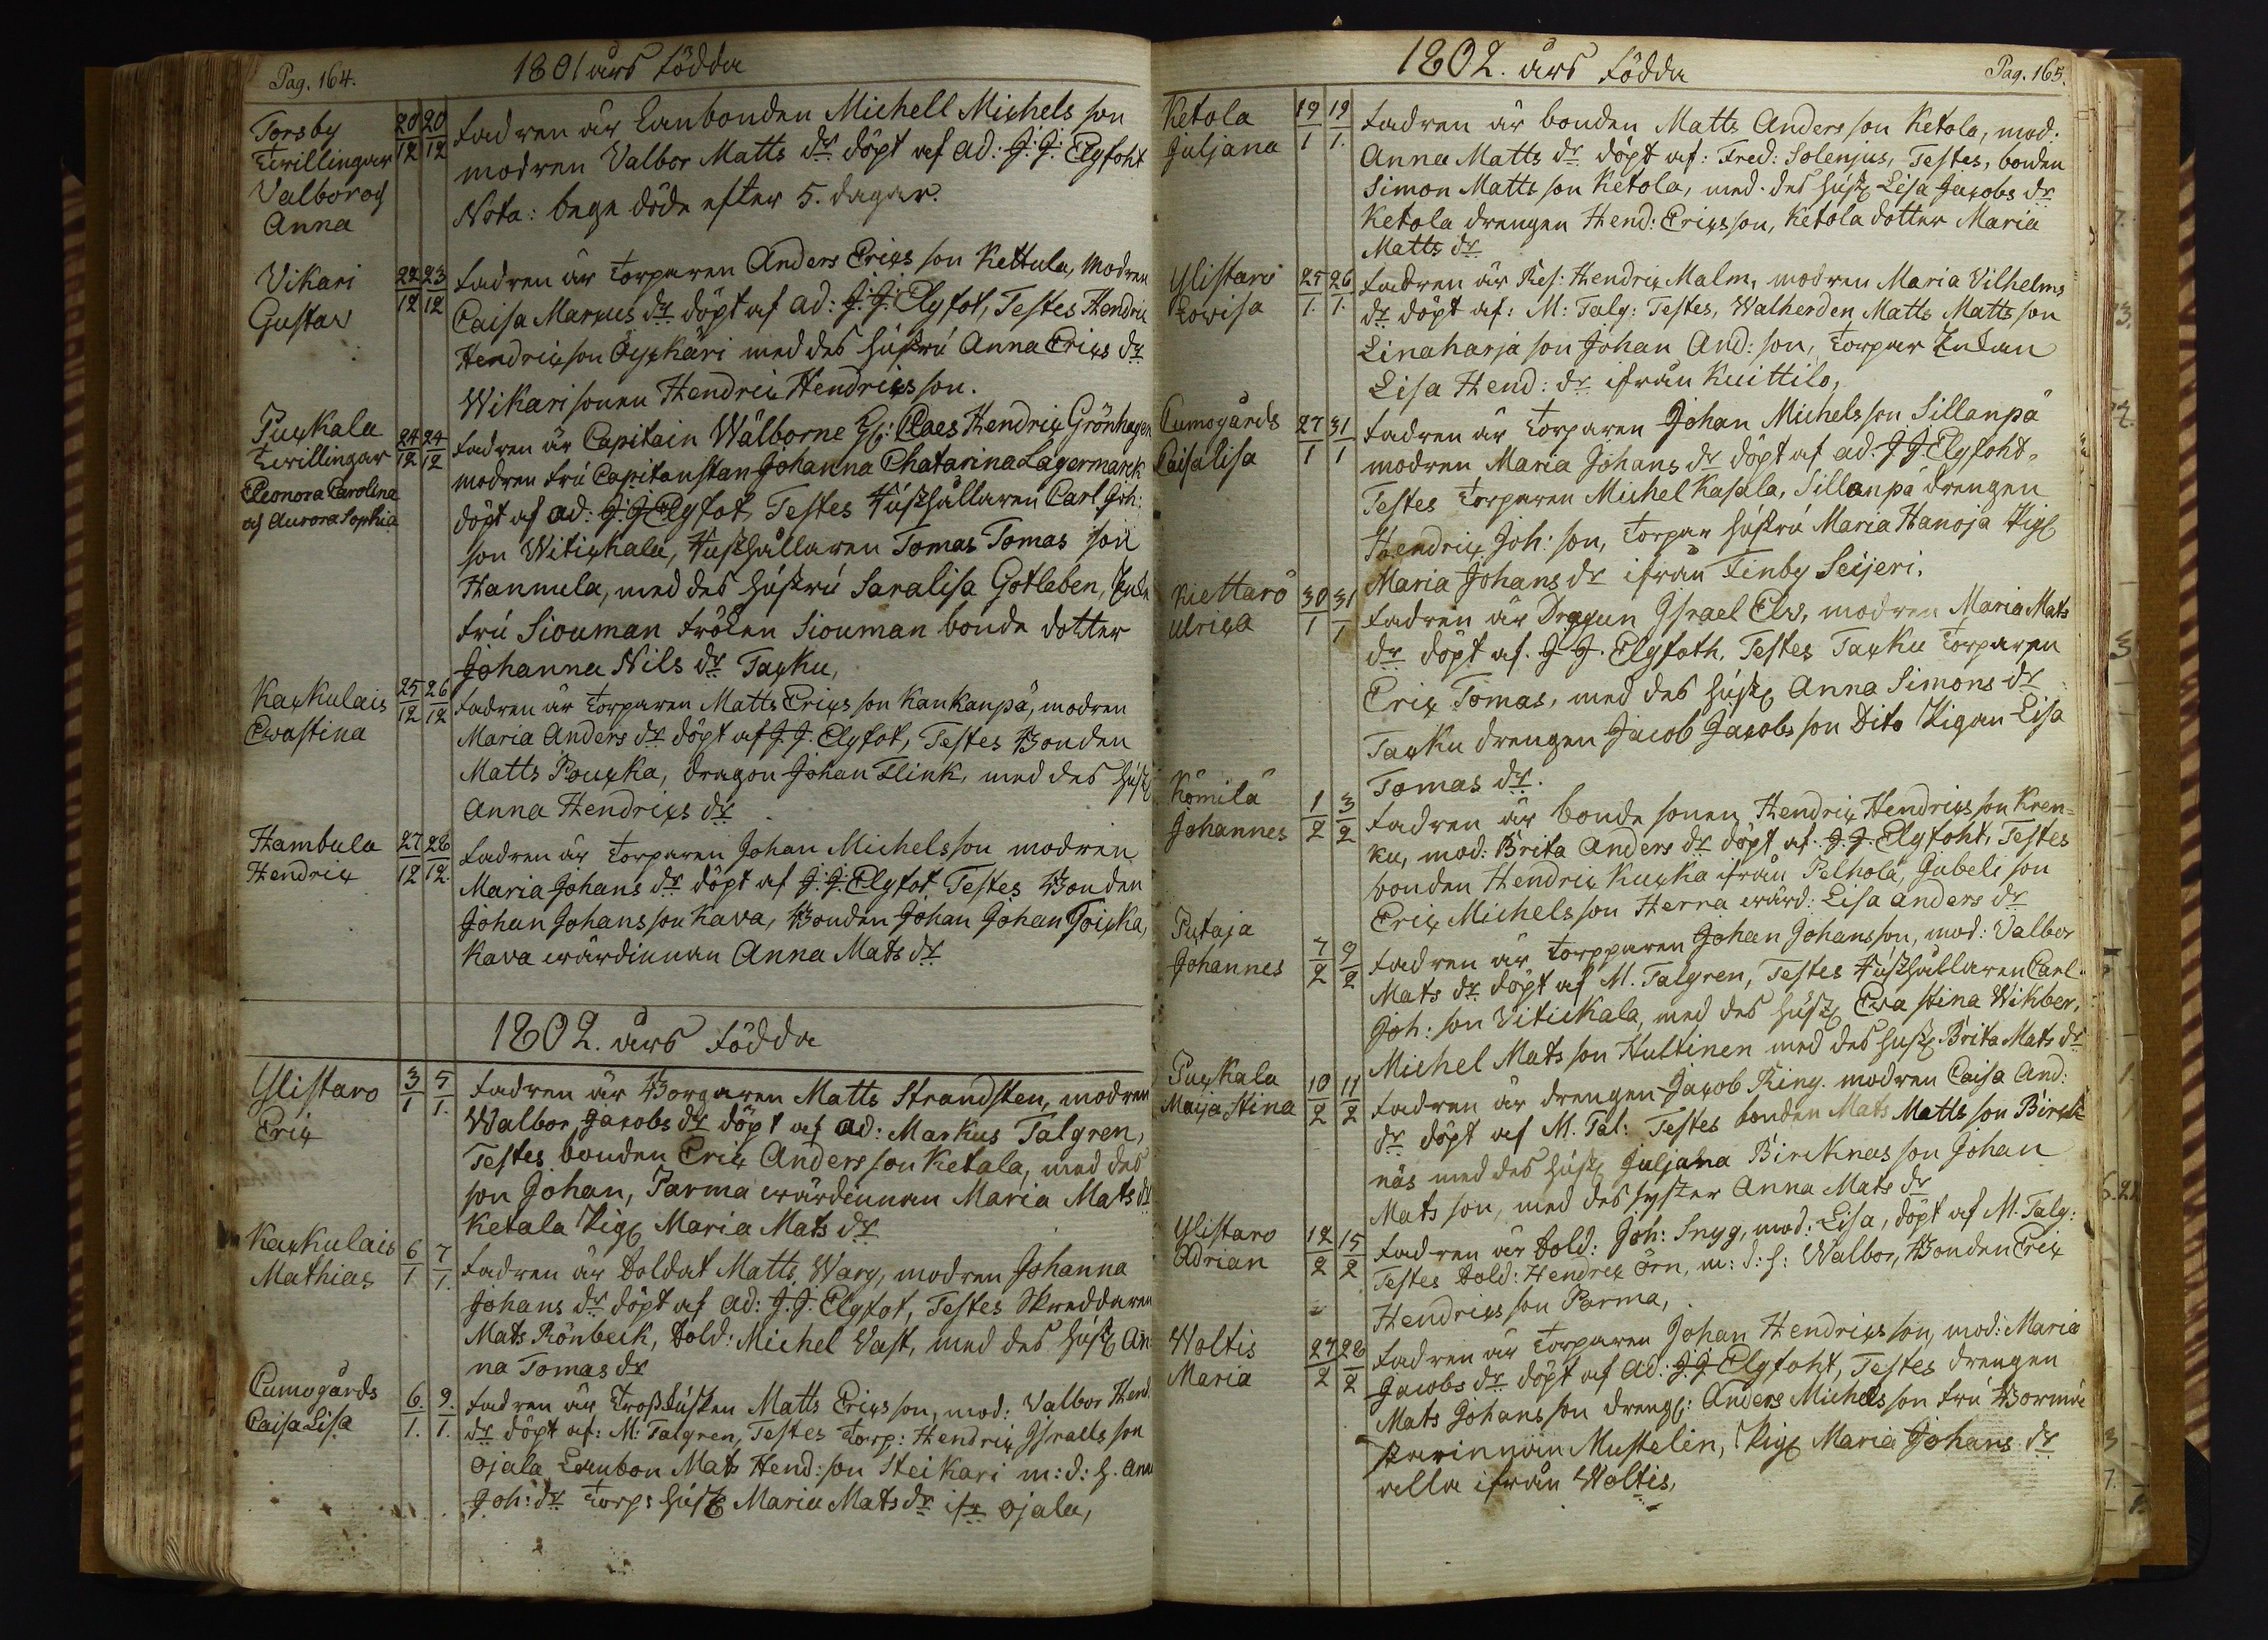 Pag. 164.
1801 års födda
Torsby
Tvillingar
Valbor og
Anna
20/12 20/12
Fadren är Lanbonden Michell Michels son
modren Valbor Matts dr döpt af ad: J: J: Elgfoht
Nota: bege döde efter 5. dagar.
Vikari
Gustav
22/12 23/12
Fadren är Torparen Anders Erics son Kettula, Modren
Caisa Marcus dr döpt af ad: J: J: Elgfot, Testes Hendric
Hendricson med des hustru Anna Erics dr
Wikari sonen Hendric Hendrics son.
Puckala
Tvillingar
Eleonora Carolina
og Aurora Sophia
24/12 24/12
Fadren är Capitain Wälborne H: Claes Hendric Grönhagen
modren Fru Capitanskan Johanna Chatarina Lagermarck
döpt af ad: J: J Elgfot, Testes Hushållaren Carl Joh:
son Witickala, Hushållaren Tomas Tomas son
Hannula, med des hustru Saralisa Gotleben,
Fru Siouman Fröken Siouman bonde dotter
Johanna Nils dr Tacku,
Kackulais
Evastina
25/12 26/12
Fadren är Torparen Matts Erics son Kankanpä, modren
Maria Anders dr döpt af J. J. Elgfot, Testes Bonden
Matts Poucka, dragon Johan Flink, med des hust
Anna Hendrics dr
Hambula
Hendric
27/12 28/12
Fadren är Torparen Johan Michelsson modren
Maria Johans dr döpt af J. J. Elgfot Testes Bonden
Johan Johans son Kava, Bonden Johan Johan Joicka,
Kava wärdinnan Anna Mats dr
1802. års födda
Ylistaro
Eric
3/1 5/1.
Fadren är Borgaren Matts Strandsten, modren
Walbor Jacobs dr döpt af ad: Markus Talgren,
Testes bonden Eric Anders son Ketala, med des
son Johan, Parma wärdinnan Maria Mats dr
Ketala Pig Maria Mats dr
Kackulais
Mathias
6/1 7/1.
Fadren är Soldat Matts Warg, modren Johanna
Johans dr döpt af ad: J. J. Elgfot, Testes Skreddaren
Mats Rönbeck, Sold: Michel Vast, med des hust An
na Tomas dr
Cumogårds
Caisa Lisa
6./1. 9./1.
Fadren är Trosskusken Matts Ericsson, mod: Valbor Hend.
dr döpt af: M: Talgren, Testes Torp: Hendric Israels son
Ojala Lanbon Mats Hend: son Steikari m: d: h. Anna
Joh: dr Torp: hust Maria Mats dr ifr Ojala,
1802. års födda
Pag. 165.
Ketola
Juljana
19/1 19/1.
Fadren är bonden Matts Anders son Ketola, mod.
Anna Matts dr döpt af: Fred: Solenjus, Testes, bonden
Simon Matts son Ketola, med des hust Lisa Jacobs dr
Ketola drengen Hend: Ericsson, Ketola dotter Maria
Matts dr
Ylistaro
Lowisa
25/1. 26/1.
Fadren är Ref: Hendric Malm, modren Maria Vilhelms
dr döpt af: M: Talg: Testes, Walherden Matts Matts son
Linaharja son Johan And: son, Torpar
Lisa Hend: dr ifrån Kuittilo,
Cumogårds
Caisa lisa
27/1 31/1
Fadren är Torparen Johan Michels son Sillanpä
modren Maria Johans dr döpt af ad. J J. Elgfoht,
Testes Torparen Michel Kasala, Sillanpä drengen
Hendric Joh: son, Torpar hustru Maria Hanoja Pig
Maria Johans dr ifrån Finby Seijeri.
Kiettaro
Ulrica
30/1 31/1
Fadren är Dragun Israel Elv, modren Maria Mats
dr döpt af. J J. Elgfoth, Testes Tacku Torparen
Eric Tomas, med des hust Anna Simons dr
Tacku drengen Jacob Jacobs son Dito Pigan Lisa
Tomas dr.
Kömilä
Johannes
1/2 3/2
Fadren är bonde sonen Hendric Hendrics son Kren=
ku, mod: Brita Anders dr döpt af. J. J. Elgfoht, Testes
bonden Hendric Kucka ifrån Pelhola, Gubeli son
Eric Michels son Herra wärd: Lisa Anders dr
Putaja
Johannes
7/2 9/2
Fadren är Torpparen Johan Johansson, mod: Valbor
Mats dr döpt af M. Talgren, Testes Hushållaren Carl
Joh: son Vitickala, med des hust Eva stina Wikber,
Michel Mats son Hultinen med des hust Brita Mats dr
Puckala
Maija stina
10/2 11/2
Fadren är drengen Jacob Ring. modren Caisa And:
dr döpt af M. Tal: Testes bonden Mats Matts son Birck
näs med des hust Juljana Bircknas son Johan
Mats son, med des syster Anna Mats dr
Ylistaro
Adrian
12/2 15/2
Fadren är Sold: Joh: Snyg, mod: Lisa, döpt af M. Talg:
Testes Sold: Hendric Örn, m: d: h: Walbor, Bonden Eric
Hendrics son Parma,
Woltis
Maria
27/2 28/2
Fadren är Torparen Johan Hendrics son, mod: Maria
Jacobs dr döpt af ad. J. J Elgfoht, Testes drengen
Mats Johans son dreng: Anders Michels son fru
Mustelin, Pig Maria Johans dr
alla ifrån Woltis,